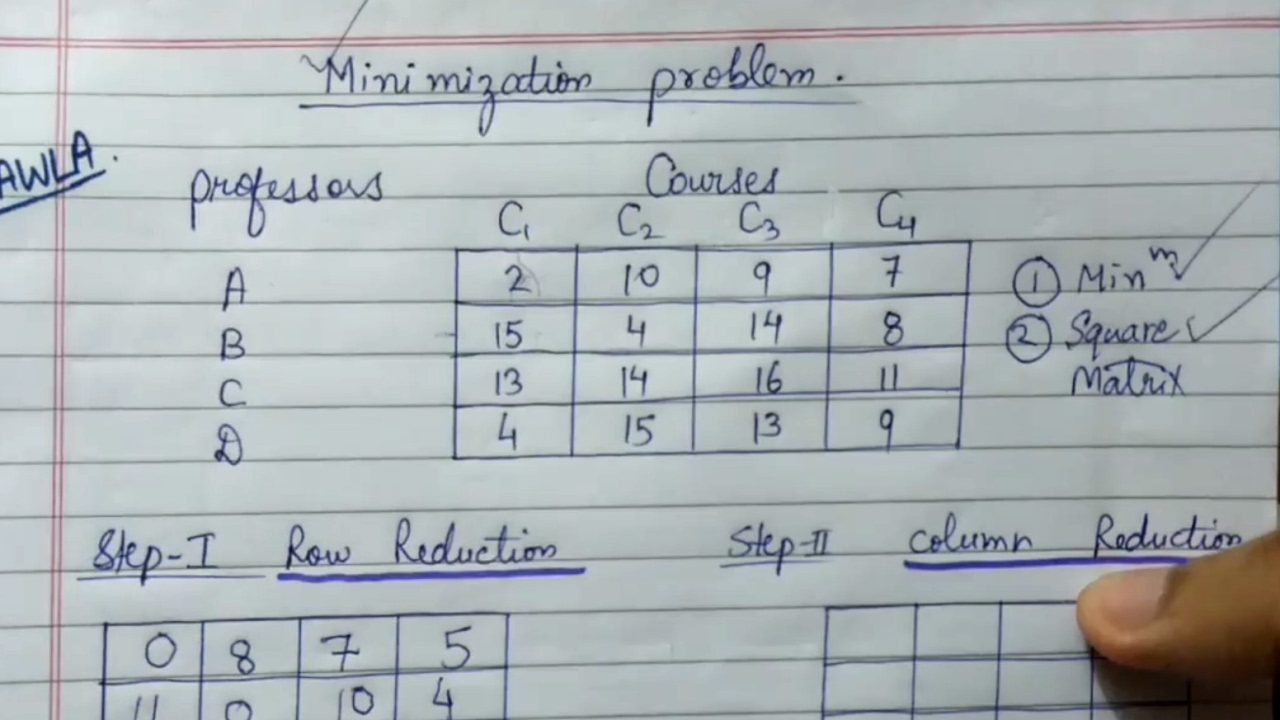 Minimization problem.
AWLA.
professors Courses
C1 C2 C3 C4
A 2 10 9 7 ① Min m
B 15 4 14 8 ② Square
C 13 14 16 11 Matrix
D 4 15 13 9
Step-I Row Reduction Step-II column Reduction
0 8 7 5
11 0 10 4